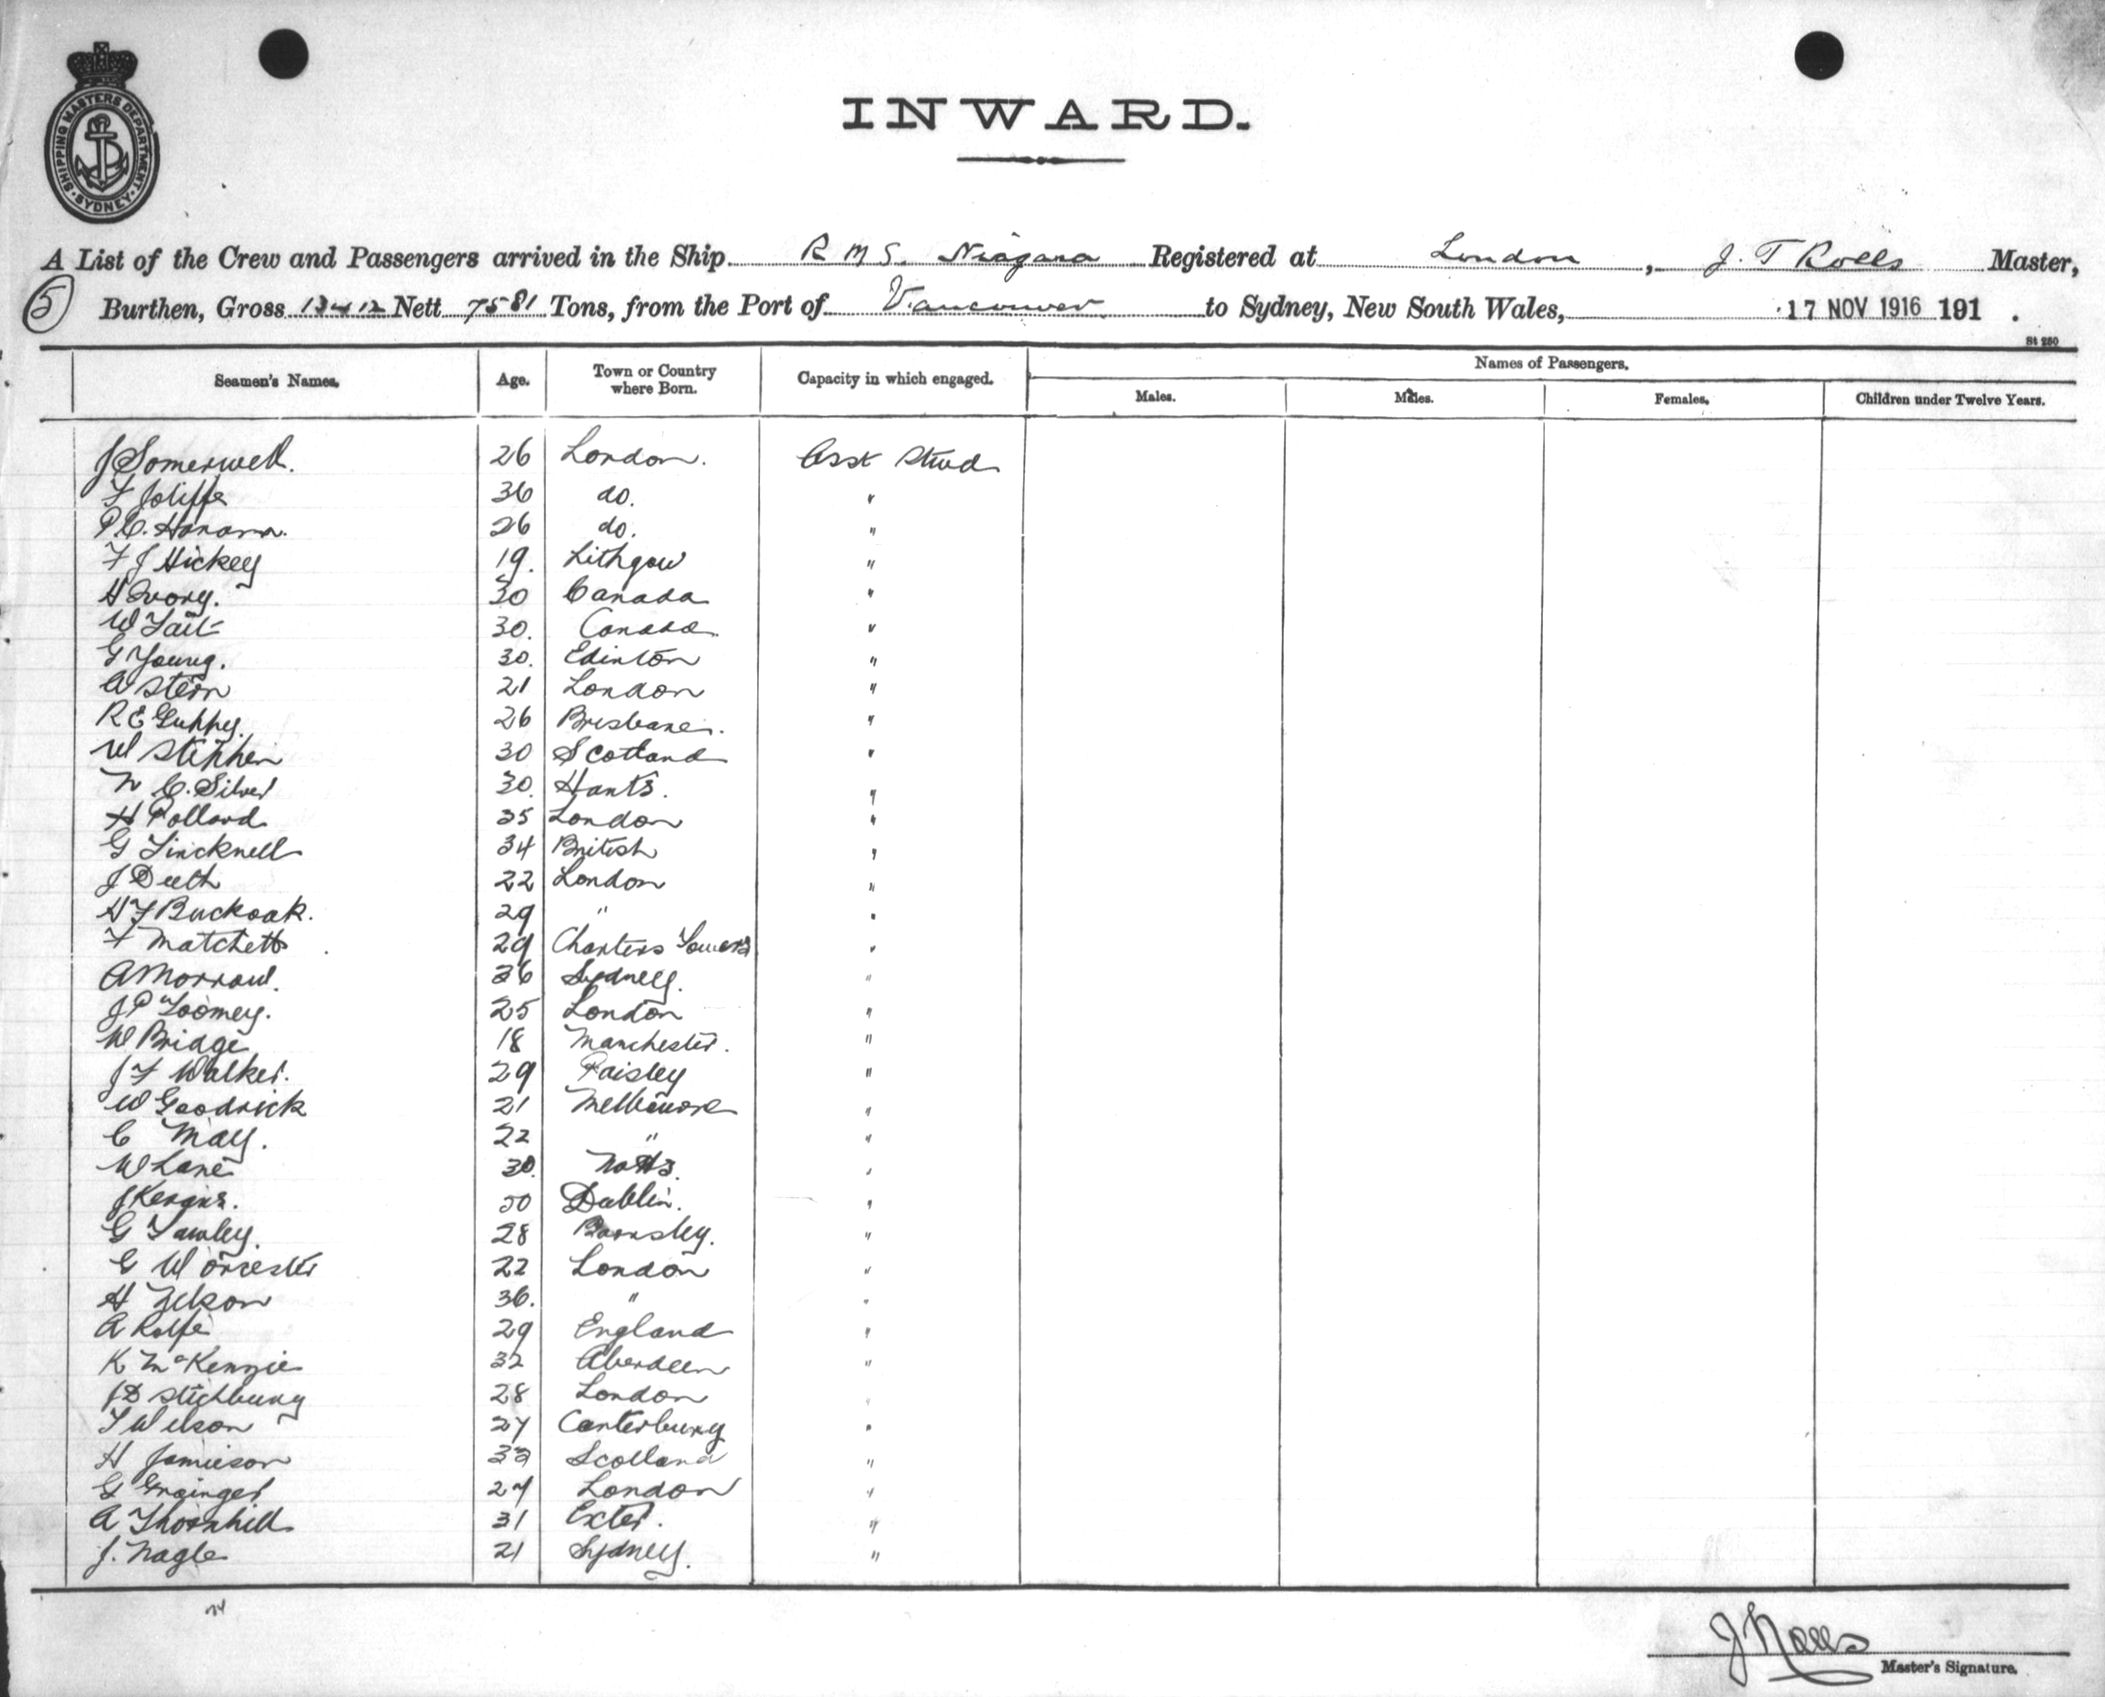 SHIPPING MASTERS DEPARTMENT · SYDNEY ·
INWARD.
A List of the Crew and Passengers arrived in the Ship R M S. Niagara Registered at London, J. T Rolls Master,
5 Burthen, Gross 13412 Nett 7581 Tons, from the Port of Vancouver to Sydney, New South Wales, 17 NOV 1916 191 .
St 250
Seamen's Names. Age. Town or Country where Born. Capacity in which engaged. Names of Passengers.
Males. Males. Females. Children under Twelve Years.
J Somerwell. 26 London. Asst Stwd
F Joliffe 36 do. "
P.C. Hanara. 26 do. "
F J Hickey 19. Lithgow "
H Ivory. 30 Canada "
W Tait 30. Canada "
G Young. 30. Edinton "
A Stern 21 London "
R E Guppy. 26 Brisbane. "
W Stephen 30 Scotland "
N C. Silver 30. Hants. "
H Pollard 35 London "
G Tincknell 34 British "
J Deeth 22 London "
H F Buckoak. 29 " "
F Matchett 29 Charters Towers "
A Morrow. 36 Sydney. "
J P Toomey. 25 London "
W Bridge 18 Manchester. "
J F Walker. 29 Paisley "
W Goodrick 21 Melbourne "
C May. 22 " "
W Lane 30. Notts. "
J 30 Dublin. "
G Tawley. 28 Barnsley. "
G Worcester 22 London "
H 36. " "
A Rolfe 29 England "
K McKenzie 32 Aberdeen "
J D Stichbury 28 London "
T Wilson 27 Canterbury "
H Jamieson 33 Scotland "
G Grainger 27 London "
A Thornhill 31 Exter. "
J. Nagle 21 Sydney. "
J Rolls
Master's Signature.